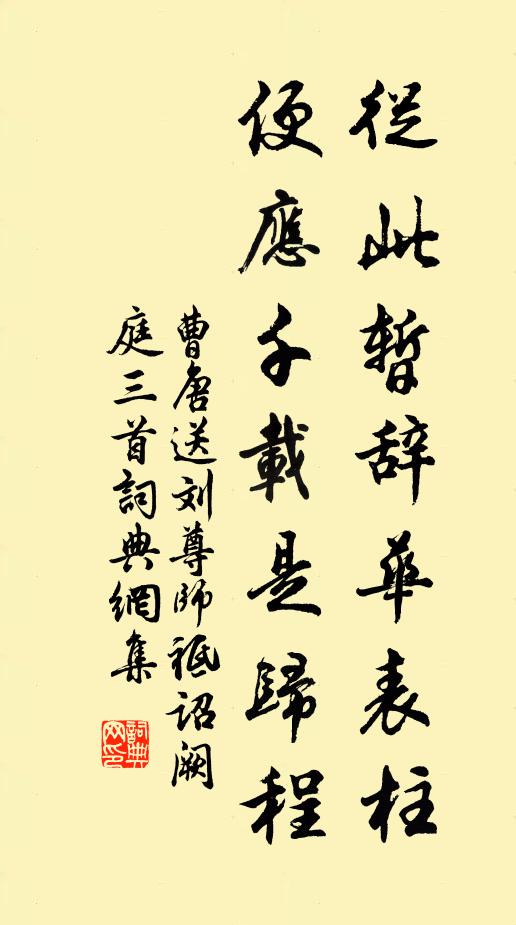 從此暫辞華表柱
便應千載是歸程
曹唐送刘尊師祗诏阙
庭三首詞典網集
詞典网印